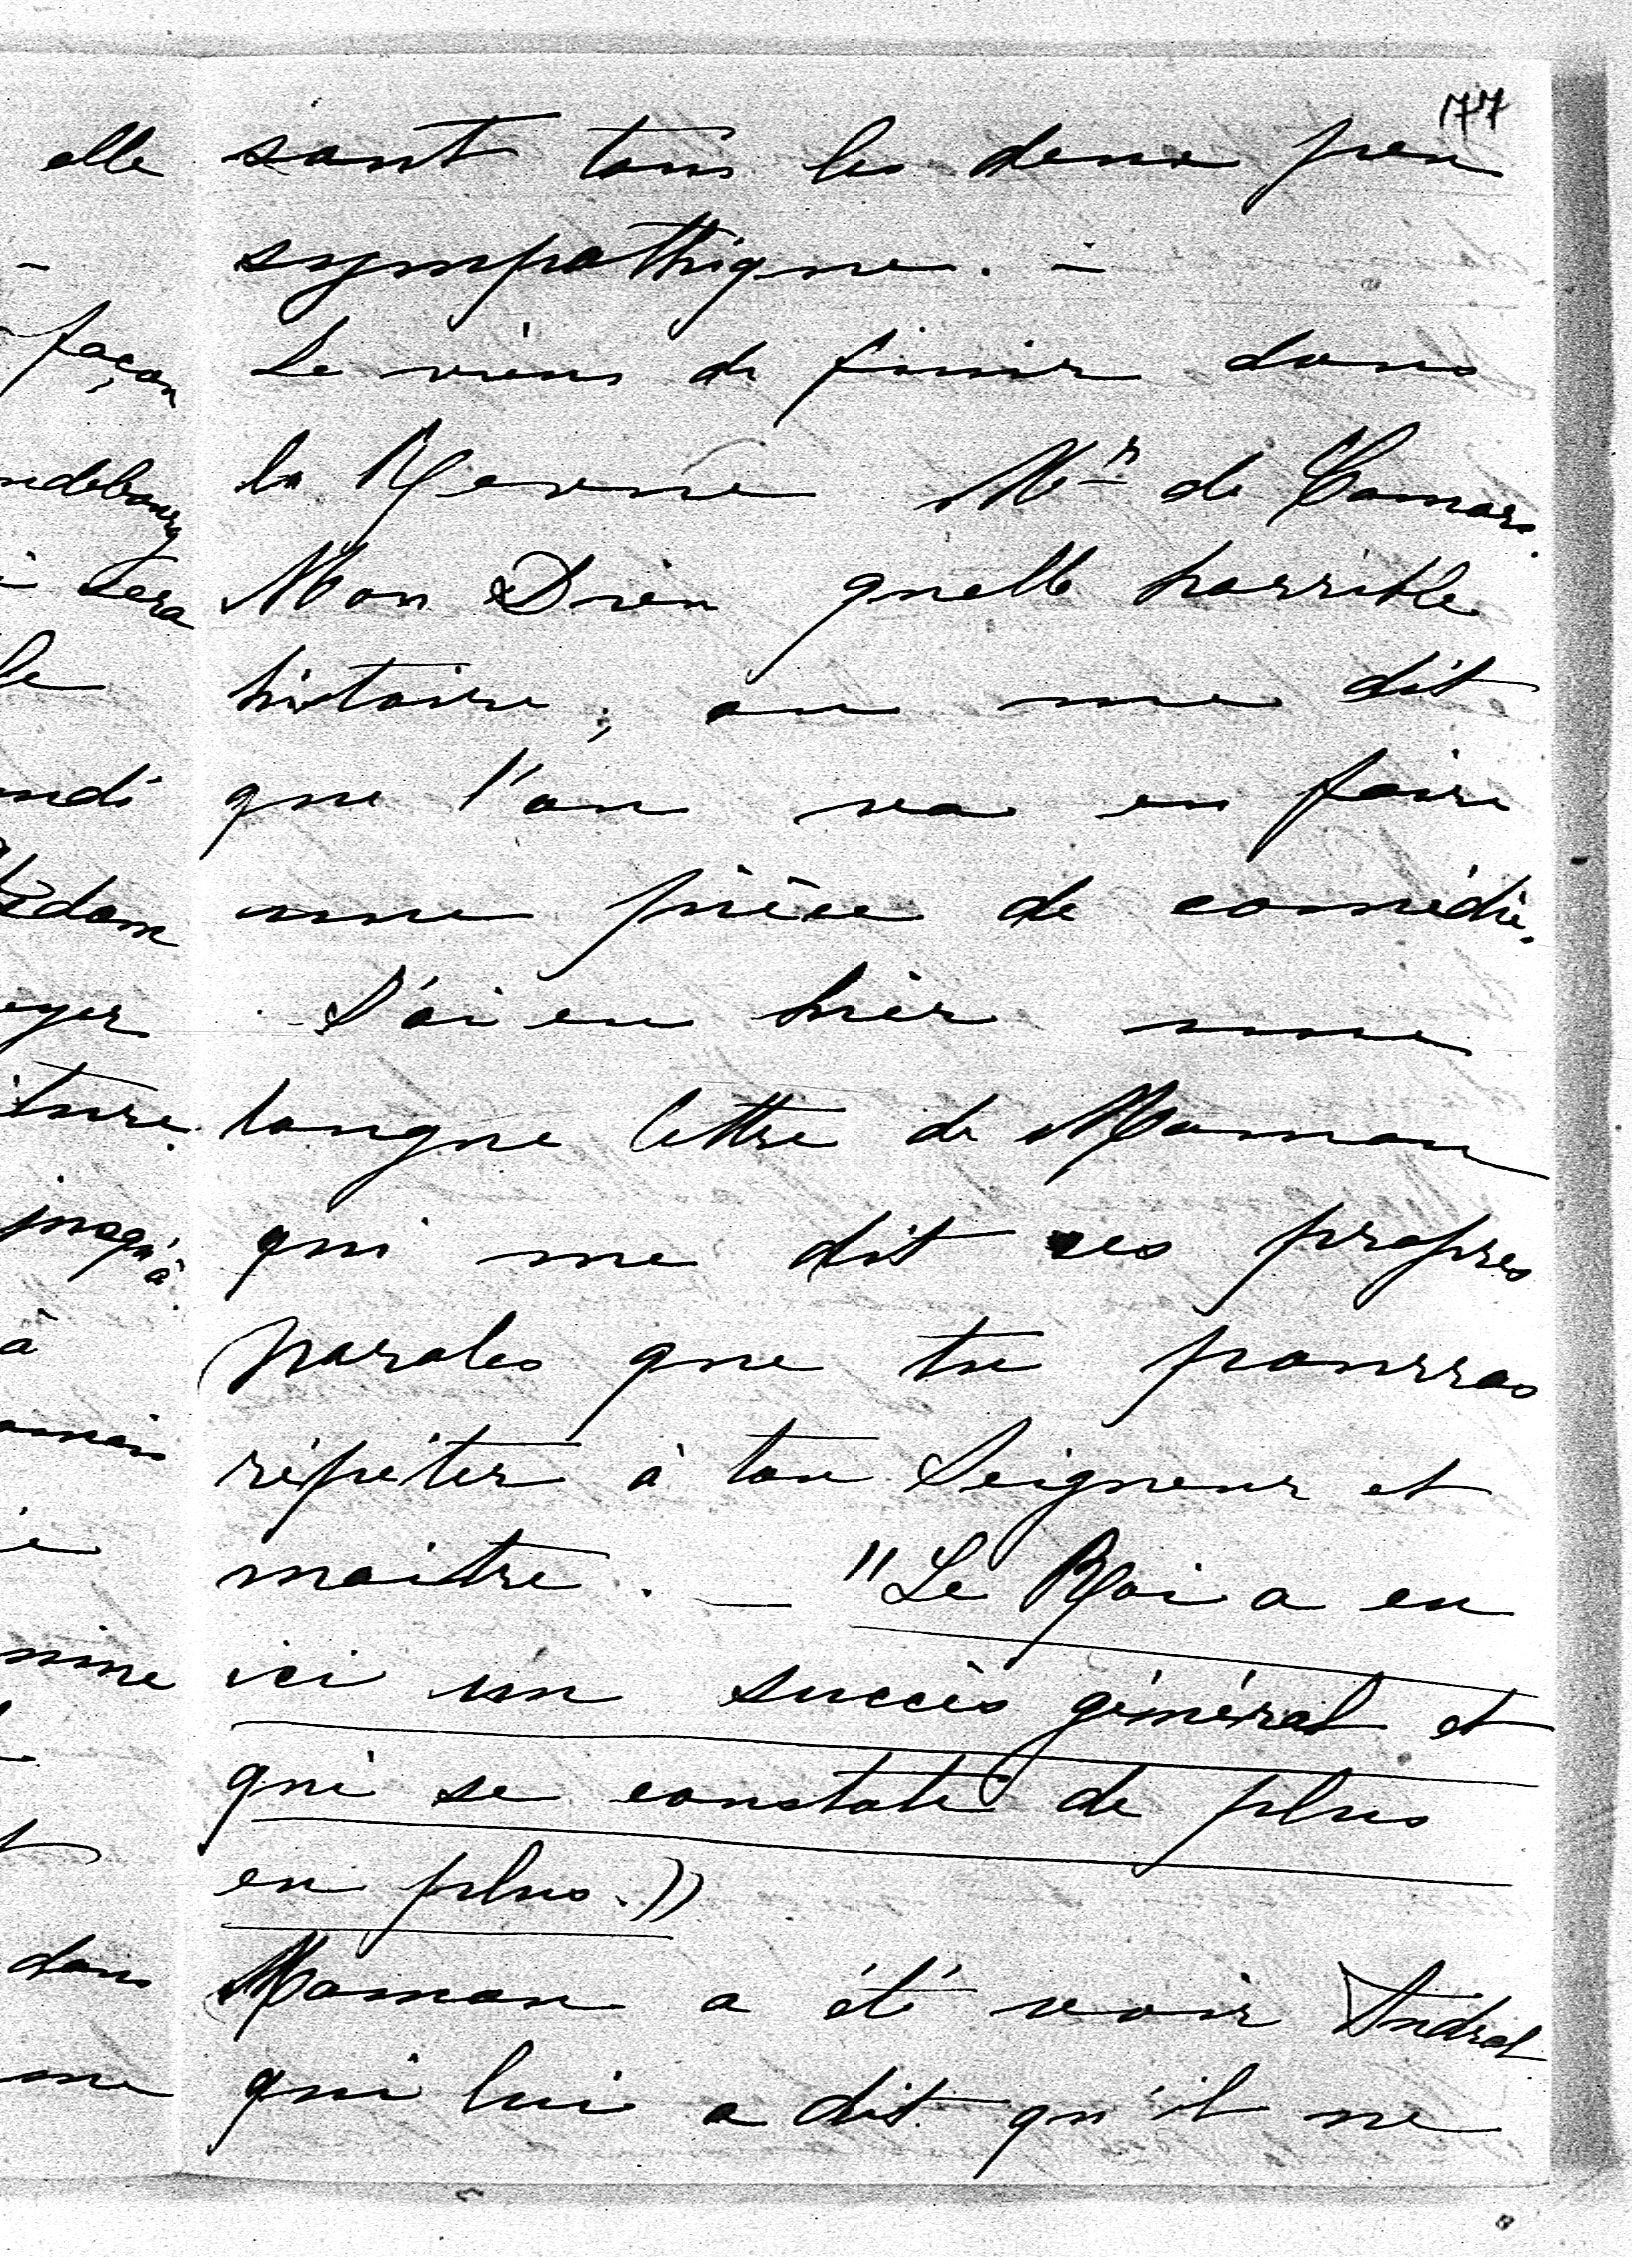 77
sont tous les deux peu
sympathique. -
Je viens de finir dans
la Revue Mr de Camors.
Mon Dieu quelle horrible
histoire ; on me dit
que l'on va en faire
une pièce de comédie.
J'ai eu hier une
longue lettre de Maman
qui me dit ces propres
paroles que tu pourras
répéter à ton Seigneur et
maître. — "Le Roi a eu
ici un succès général et
qui se constate de plus
en plus."
Maman a été voir Andral
qui lui a dit qu'il ne
elle
-
façon
sera
le
jusqu'à
à
dans
me